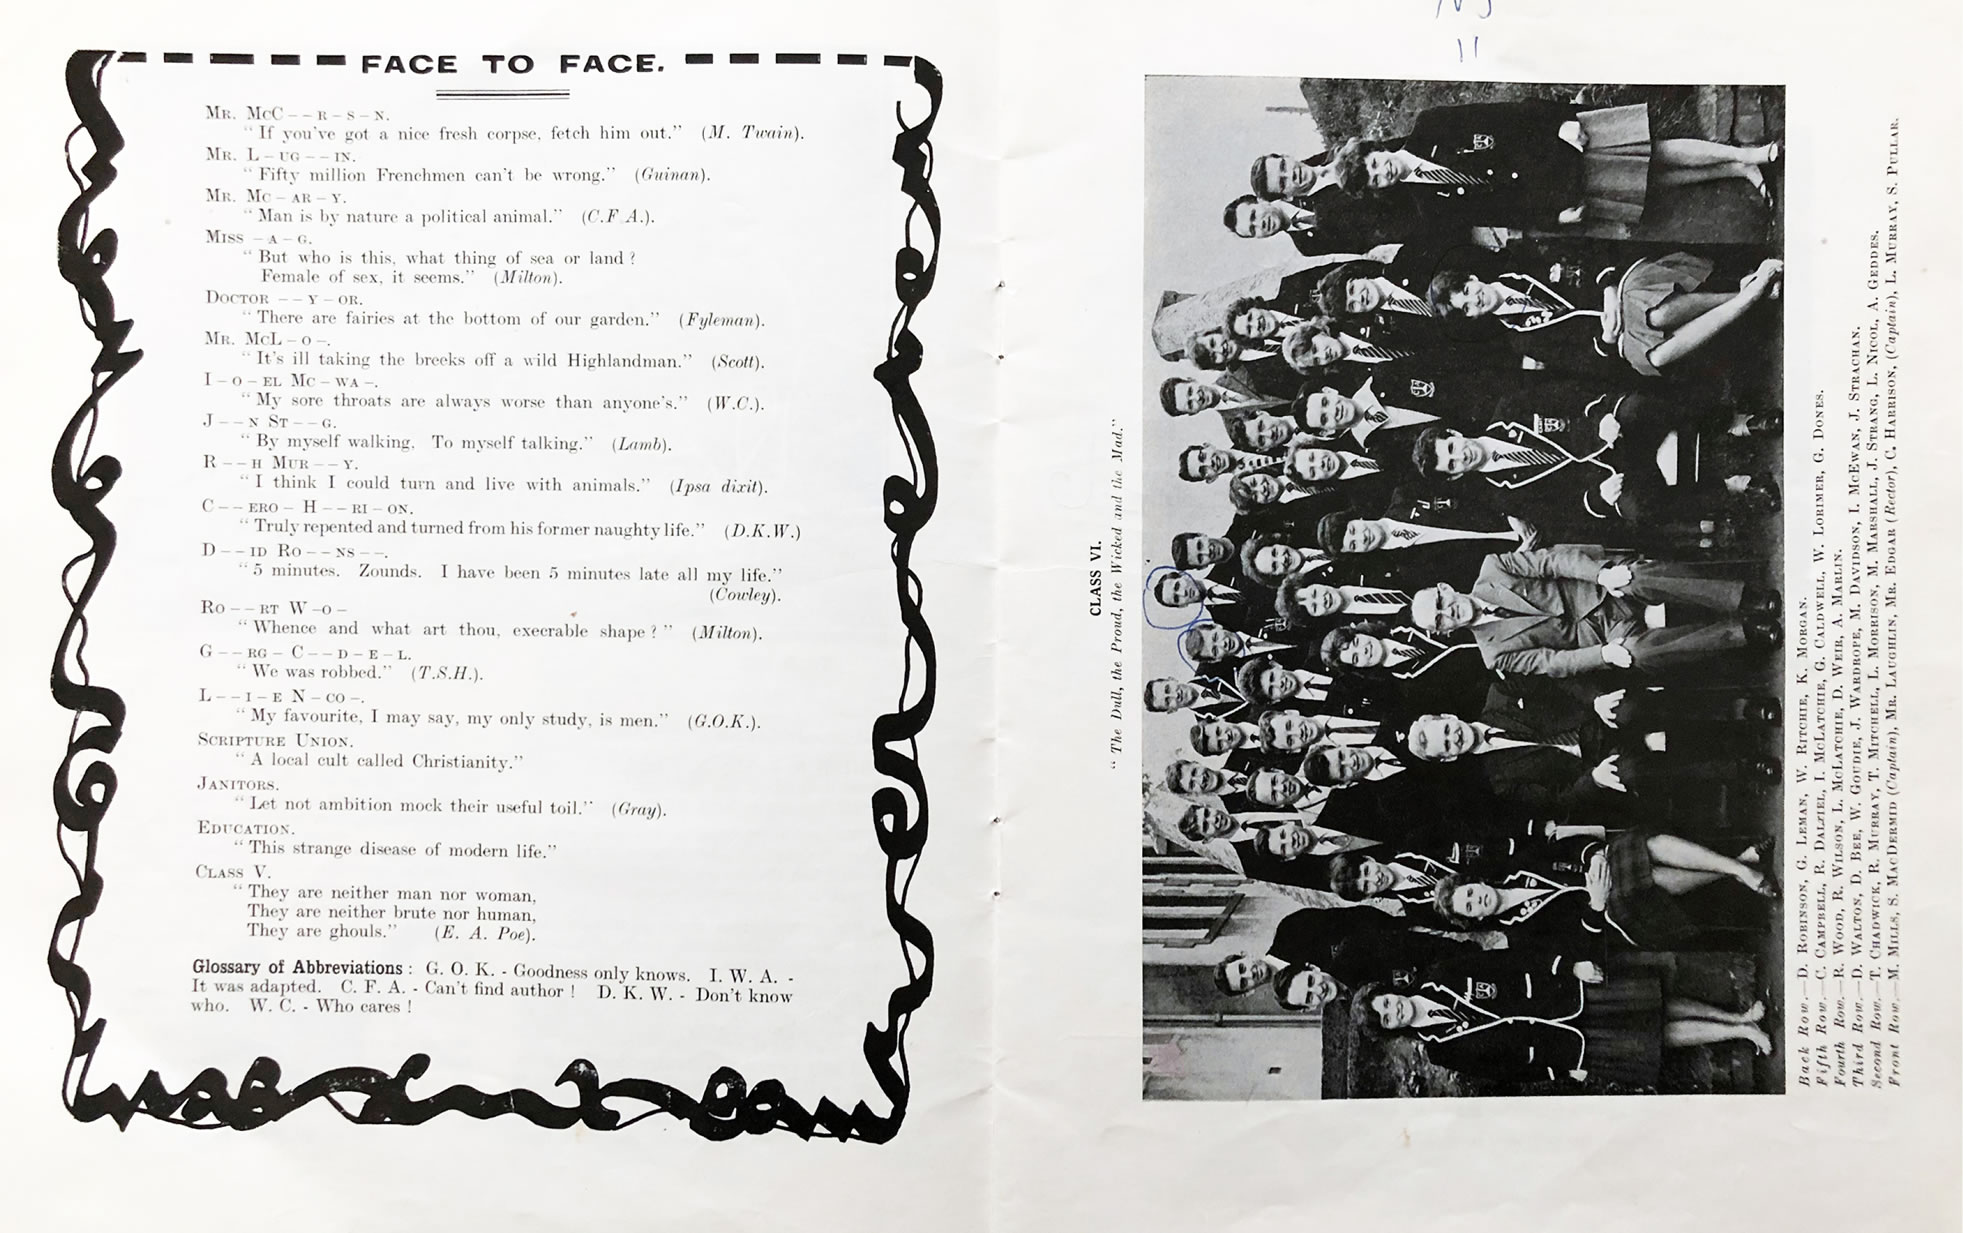 FACE TO FACE.
MR. MCC - - R - S - N.
"If you've got a nice fresh corpse, fetch him out." (M. Twain).
MR. L - UG - - IN.
"Fifty million Frenchmen can't be wrong." (Guinan).
MR. MC - AR - Y.
"Man is by nature a political animal." (C.F.A.).
MISS - A - G.
"But who is this, what thing of sea or land?
Female of sex, it seems." (Milton).
DOCTOR - - Y - OR.
"There are fairies at the bottom of our garden." (Fyleman).
MR. MCL - O -.
"It's ill taking the breeks off a wild Highlandman." (Scott).
I - O - EL MC - WA -.
"My sore throats are always worse than anyone's." (W.C.).
J - - N ST - - G.
"By myself walking. To myself talking." (Lamb).
R - - H MUR - - Y.
"I think I could turn and live with animals." (Ipsa dixit).
C - - ERO - H - - RI - ON.
"Truly repented and turned from his former naughty life." (D.K.W.)
D - - ID RO - - NS - -.
"5 minutes. Zounds. I have been 5 minutes late all my life."
(Cowley).
RO - - RT W - O -
"Whence and what art thou, execrable shape?" (Milton).
G - - RG - C - - D - E - L.
"We was robbed." (T.S.H.).
L - - I - E N - CO -.
"My favourite, I may say, my only study, is men." (G.O.K.).
SCRIPTURE UNION.
"A local cult called Christianity."
JANITORS.
"Let not ambition mock their useful toil." (Gray).
EDUCATION.
"This strange disease of modern life."
CLASS V.
"They are neither man nor woman,
They are neither brute nor human,
They are ghouls." (E. A. Poe).
Glossary of Abbreviations : G. O. K. - Goodness only knows. I. W. A. -
It was adapted. C. F. A. - Can't find author ! D. K. W. - Don't know
who. W. C. - Who cares !
CLASS VI.
"The Dull, the Proud, the Wicked and the Mad."
Back Row.—D. ROBINSON, G. LEMAN, W. RITCHIE, K. MORGAN.
Fifth Row.—C. CAMPBELL, R. DALZIEL, I. MCLATCHIE, G. CALDWELL, W. LORIMER, G. DONES.
Fourth Row.—R. WOOD, R. WILSON, L. MCLATCHIE, D. WEIR, A. MARLIN.
Third Row.—D. WALTON, D. BEE, W. GOUDIE, J. WARDROPE, M. DAVIDSON, I. MCEWAN, J. STRACHAN.
Second Row.—T. CHADWICK, R. MURRAY, T. MITCHELL, L. MORRISON, M. MARSHALL, J. STRANG, L. NICOL, A. GEDDES.
Front Row.—M. MILLS, S. MACDERMID (Captain), MR. LAUGHLIN, MR. EDGAR (Rector), C. HARRISON, (Captain), L. MURRAY, S. PULLAR.